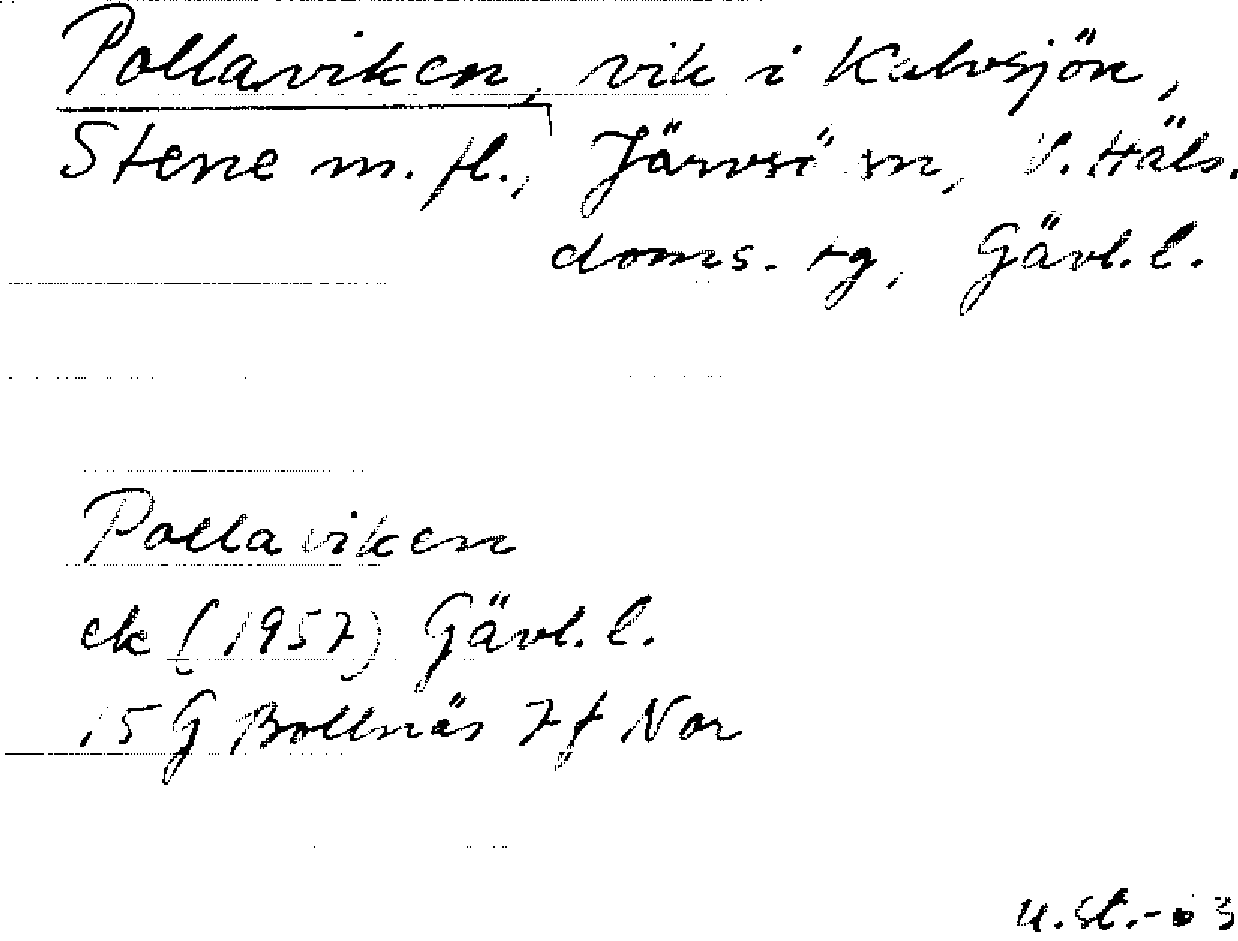 Pollaviken, vik i Kalvsjön,
Stene m. fl., Järvsö sn, V. Häls.
doms. tg, Gävl. l.
Pollaviken
ek (1957) Gävl. l.
15 G Bollnäs 7f Nor
U.St.-63